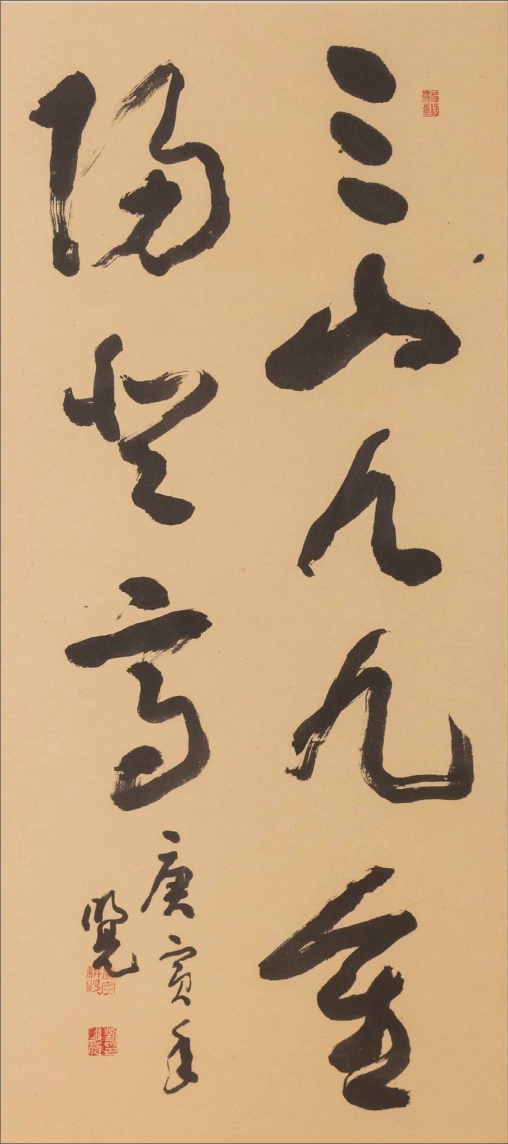 三山九九重
陽登高
庚寅年